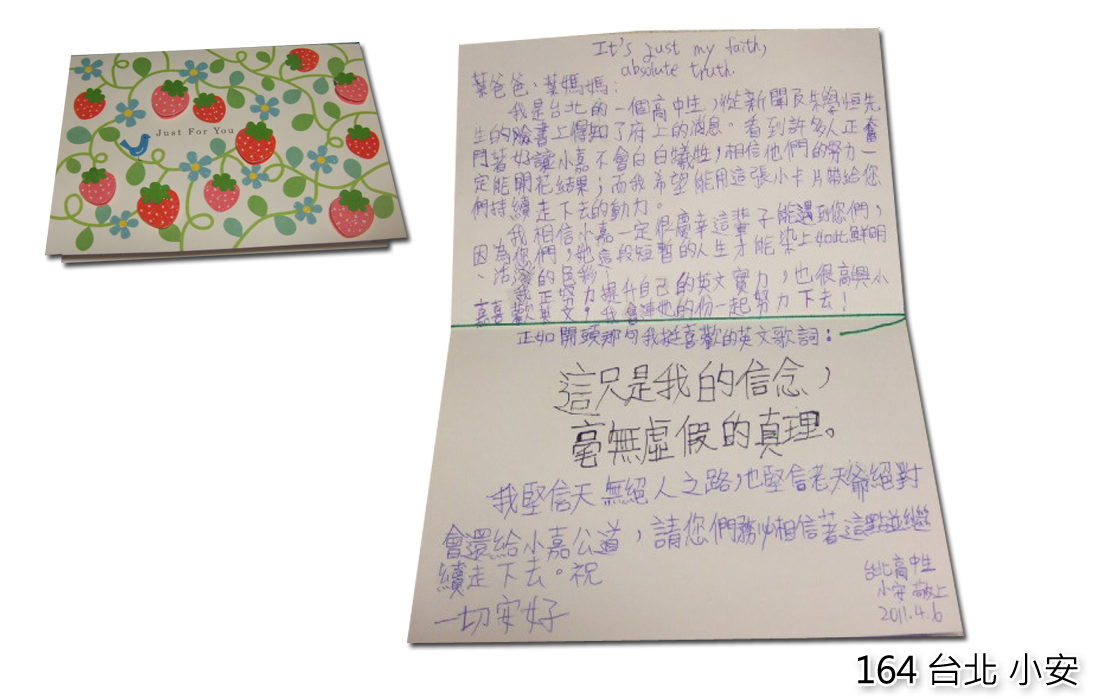 Just For You
It's just my faith,
absolute truth.
葉爸爸、葉媽媽：
我是台北的一個高中生，從新聞及朱學恒先
生的臉書上得知了府上的消息。看到許多人正奮
鬥著好讓小嘉不會白白犧牲，相信他們的努力一
定能開花結果；而我希望能用這張小卡片帶給您
們持續走下去的動力。
我相信小嘉一定很慶幸這輩子能遇到您們，
因為您們，她這段短暫的人生才能染上如此鮮明
、活潑的色彩！
我正努力提升自己的英文實力，也很高興小
嘉喜歡英文，我會連她的份一起努力下去！
正如開頭那句我挺喜歡的英文歌詞：
這只是我的信念，
毫無虛假的真理。
我堅信天無絕人之路，也堅信老天爺絕對
會還給小嘉公道，請您們務必相信著這點並繼
續走下去。祝
一切安好
台北高中生
小安 敬上
2011.4.6
164 台北 小安